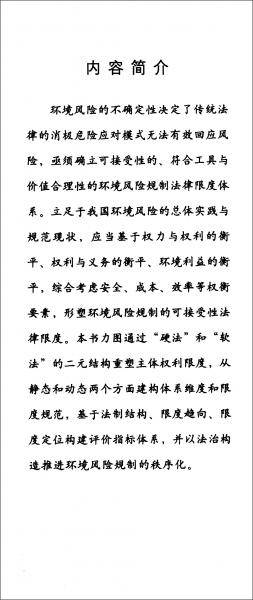 内容简介
环境风险的不确定性决定了传统法
律的消极危险应对模式无法有效回应风
险，亟须确立可接受性的、符合工具与
价值合理性的环境风险规制法律限度体
系。立足于我国环境风险的总体实践与
规范现状，应当基于权力与权利的衡
平、权利与义务的衡平、环境利益的衡
平，综合考虑安全、成本、效率等权衡
要素，形塑环境风险规制的可接受性法
律限度。本书力图通过“硬法”和“软
法”的二元结构重塑主体权利限度，从
静态和动态两个方面建构体系维度和限
度规范，基于法制结构、限度趋向、限
度定位构建评价指标体系，并以法治构
造推进环境风险规制的秩序化。